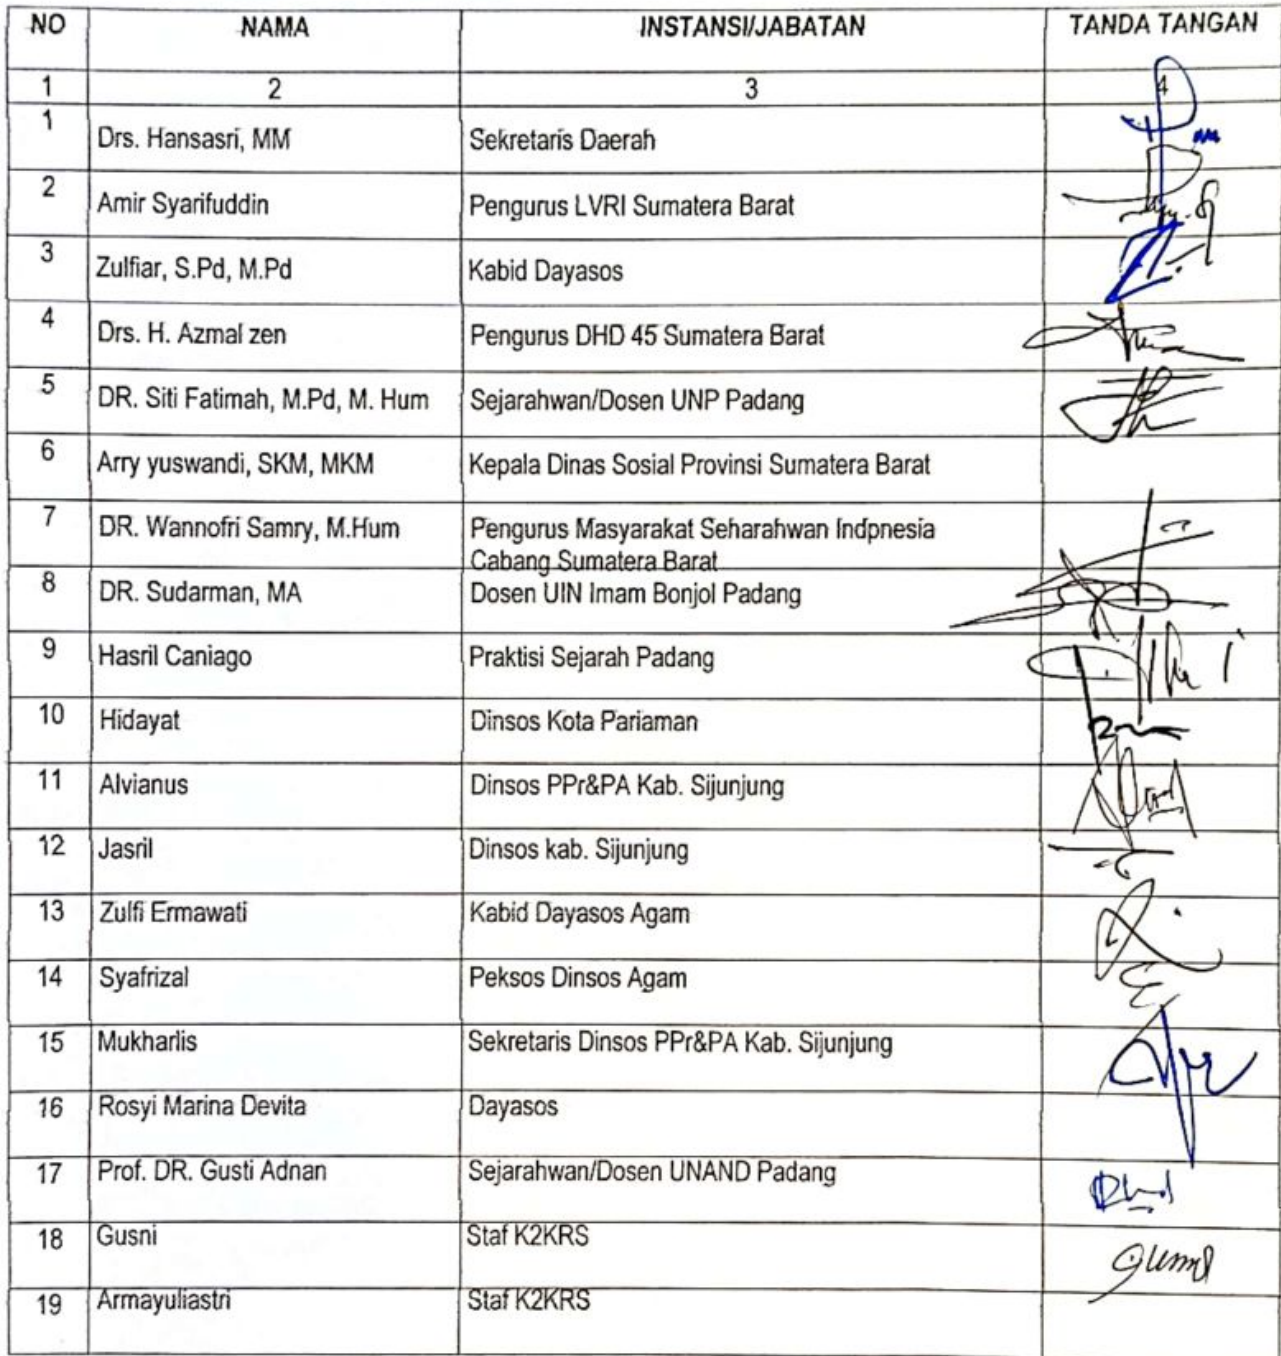 NO NAMA INSTANSI/JABATAN TANDA TANGAN
1 2 3 4
1 Drs. Hansasri, MM Sekretaris Daerah
2 Amir Syarifuddin Pengurus LVRI Sumatera Barat
3 Zulfiar, S.Pd, M.Pd Kabid Dayasos
4 Drs. H. Azmal zen Pengurus DHD 45 Sumatera Barat
5 DR. Siti Fatimah, M.Pd, M. Hum Sejarahwan/Dosen UNP Padang
6 Arry yuswandi, SKM, MKM Kepala Dinas Sosial Provinsi Sumatera Barat
7 DR. Wannofri Samry, M.Hum Pengurus Masyarakat Seharahwan Indpnesia
Cabang Sumatera Barat
8 DR. Sudarman, MA Dosen UIN Imam Bonjol Padang
9 Hasril Caniago Praktisi Sejarah Padang
10 Hidayat Dinsos Kota Pariaman
11 Alvianus Dinsos PPr&PA Kab. Sijunjung
12 Jasril Dinsos kab. Sijunjung
13 Zulfi Ermawati Kabid Dayasos Agam
14 Syafrizal Peksos Dinsos Agam
15 Mukharlis Sekretaris Dinsos PPr&PA Kab. Sijunjung
16 Rosyi Marina Devita Dayasos
17 Prof. DR. Gusti Adnan Sejarahwan/Dosen UNAND Padang
18 Gusni Staf K2KRS
19 Armayuliastri Staf K2KRS